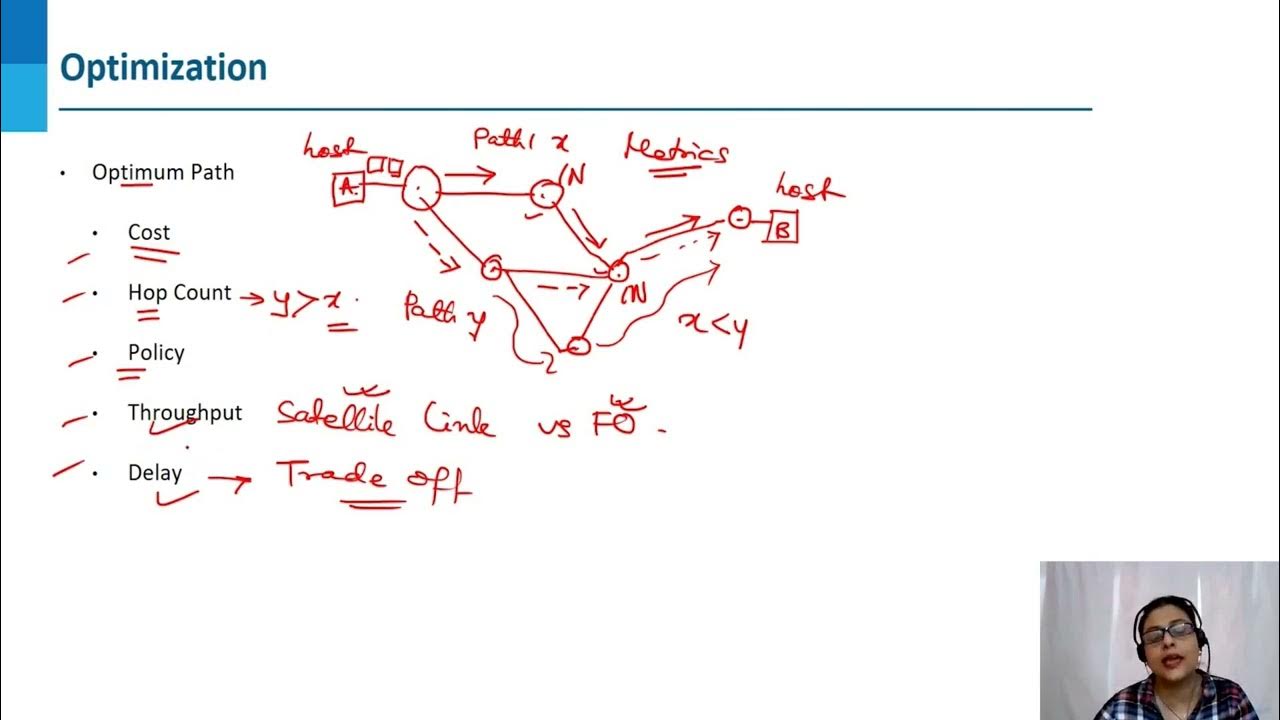 Optimization
host
Path 1 x
Metrics
host
• Optimum Path
A
N
B
• Cost
• Hop Count → y > x.
Path y
N
x < y
• Policy
• Throughput Satellite Link vs FO.
• Delay → Trade off